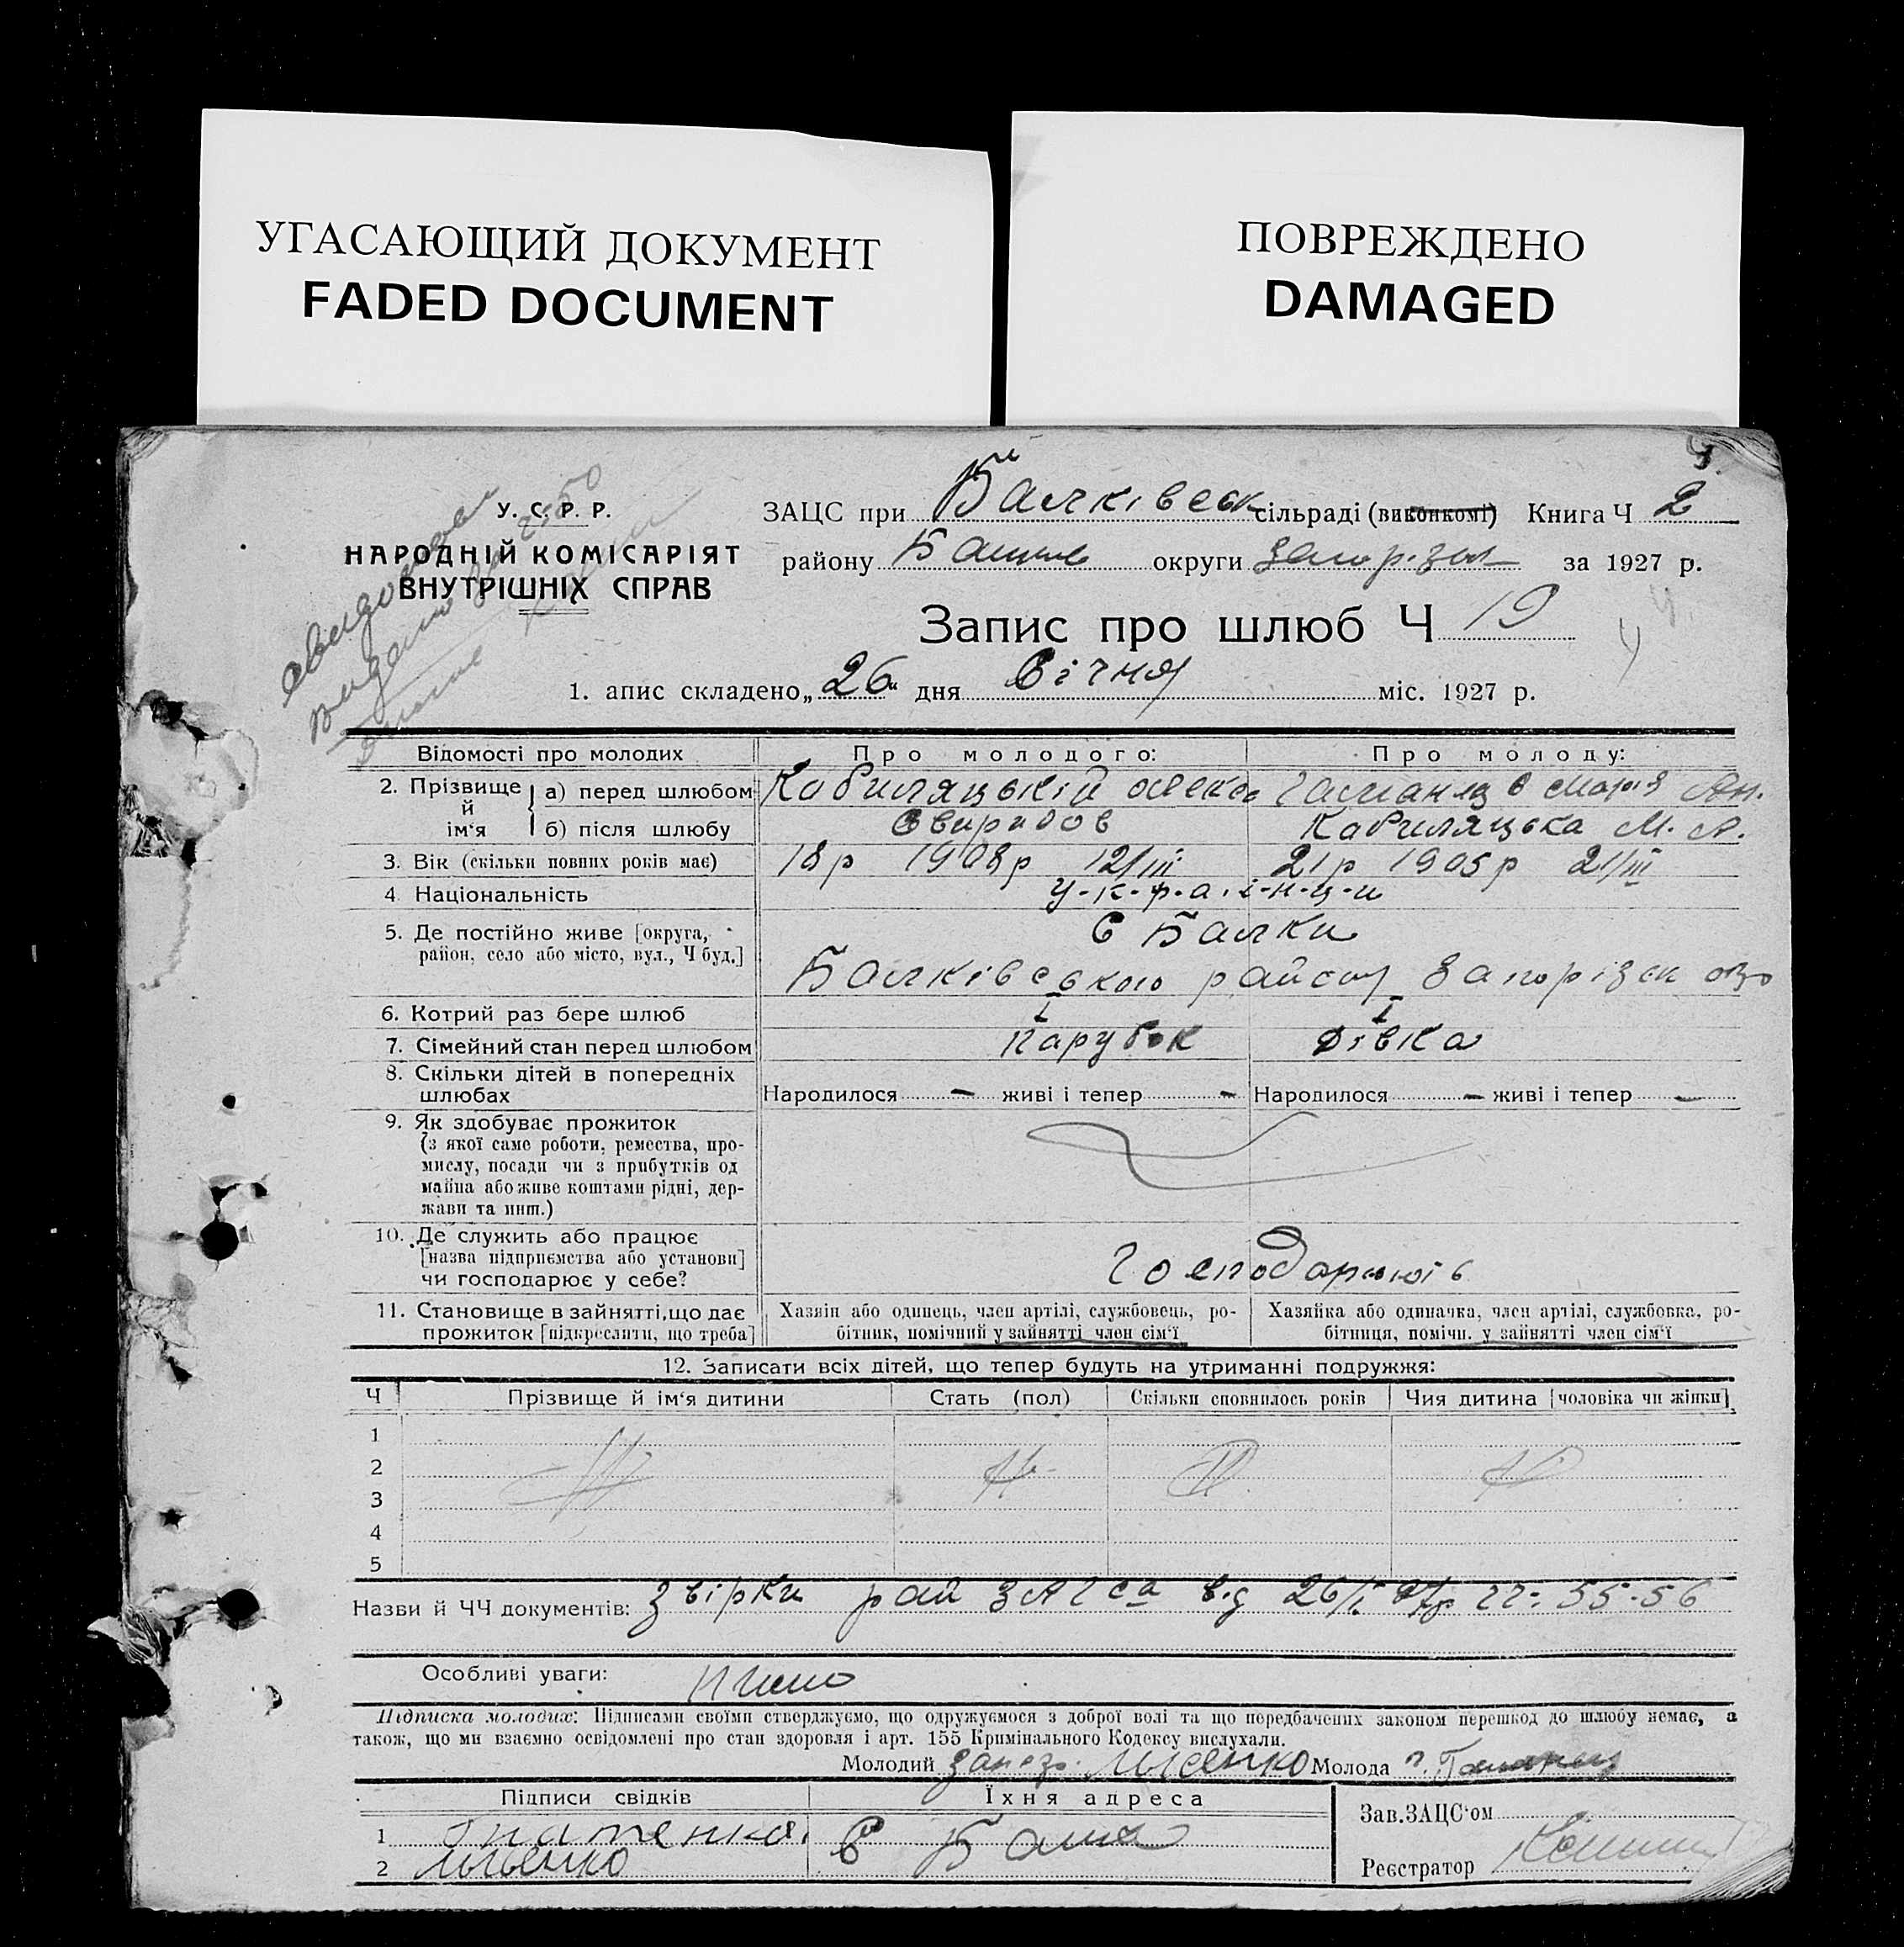 УГАСАЮЩИЙ ДОКУМЕНТ
FADED DOCUMENT
ПОВРЕЖДЕНО
DAMAGED
У. С. Р. Р.
НАРОДНІЙ КОМІСАРІЯТ
ВНУТРІШНІХ СПРАВ
ЗАЦС при Балківськ сільраді (виконкомі) Книга Ч 2
району округи за 1927 р.
Запис про шлюб Ч 19
1. апис складено „26“ дня Січня міс. 1927 р.
Відомості про молодих Про молодого: Про молоду:
2. Прізвище й ім‘я а) перед шлюбом Кобиляцький Марія Ан.
б) після шлюбу Свиридов Кобиляцька М. А.
3. Вік (скільки повних років має) 18 р 1908 р 12/III 21 р 1905 р 21/III
4 Національність у-к-р-а-ї-н-ц-и
5. Де постійно живе [округа, район, село або місто, вул., Ч буд.] С Балки
Балківського району Запорізьк
6. Котрий раз бере шлюб I I
7. Сімейний стан перед шлюбом парубок дівка
8. Скільки дітей в попередніх шлюбах Народилося — живі і тепер — Народилося — живі і тепер —
9. Як здобуває прожиток
(з якої саме роботи, ремества, про-
мислу, посади чи з прибутків од
майна або живе коштами рідні, дер-
жави та инш.)
10. Де служить або працює
[назва підприємства або установи]
чи господарює у себе?
11. Становище в зайнятті, що дає
прожиток [підкреслити, що треба]
Хазяїн або одинець, член артілі, службовець, ро-
бітник, помічний у зайнятті член сім‘ї
Хазяйка або одиначка, член артілі, службовка, ро-
бітниця, помічн. у зайнятті член сім‘ї
12. Записати всіх дітей, що тепер будуть на утриманні подружжя:
Ч Прізвище й ім‘я дитини Стать (пол) Скільки сповнилось років Чия дитина [чоловіка чи жінки]
1
2
3
4
5
Назви й ЧЧ документів: звірки рай ЗАГСа від 26/I 27р 55-56
Особливі уваги:
Підписка молодих: Підписами своїми стверджуємо, що одружуємося з доброї волі та що передбачених законом перешкод до шлюбу немає, а
також, що ми взаємно освідомлені про стан здоровля і арт. 155 Кримінального Кодексу вислухали.
Молодий Лысенко Молода
Підписи свідків Їхня адреса
1 Гнатенко С Балка
2 Лысенко
Зав. ЗАЦС‘ом
Реєстратор